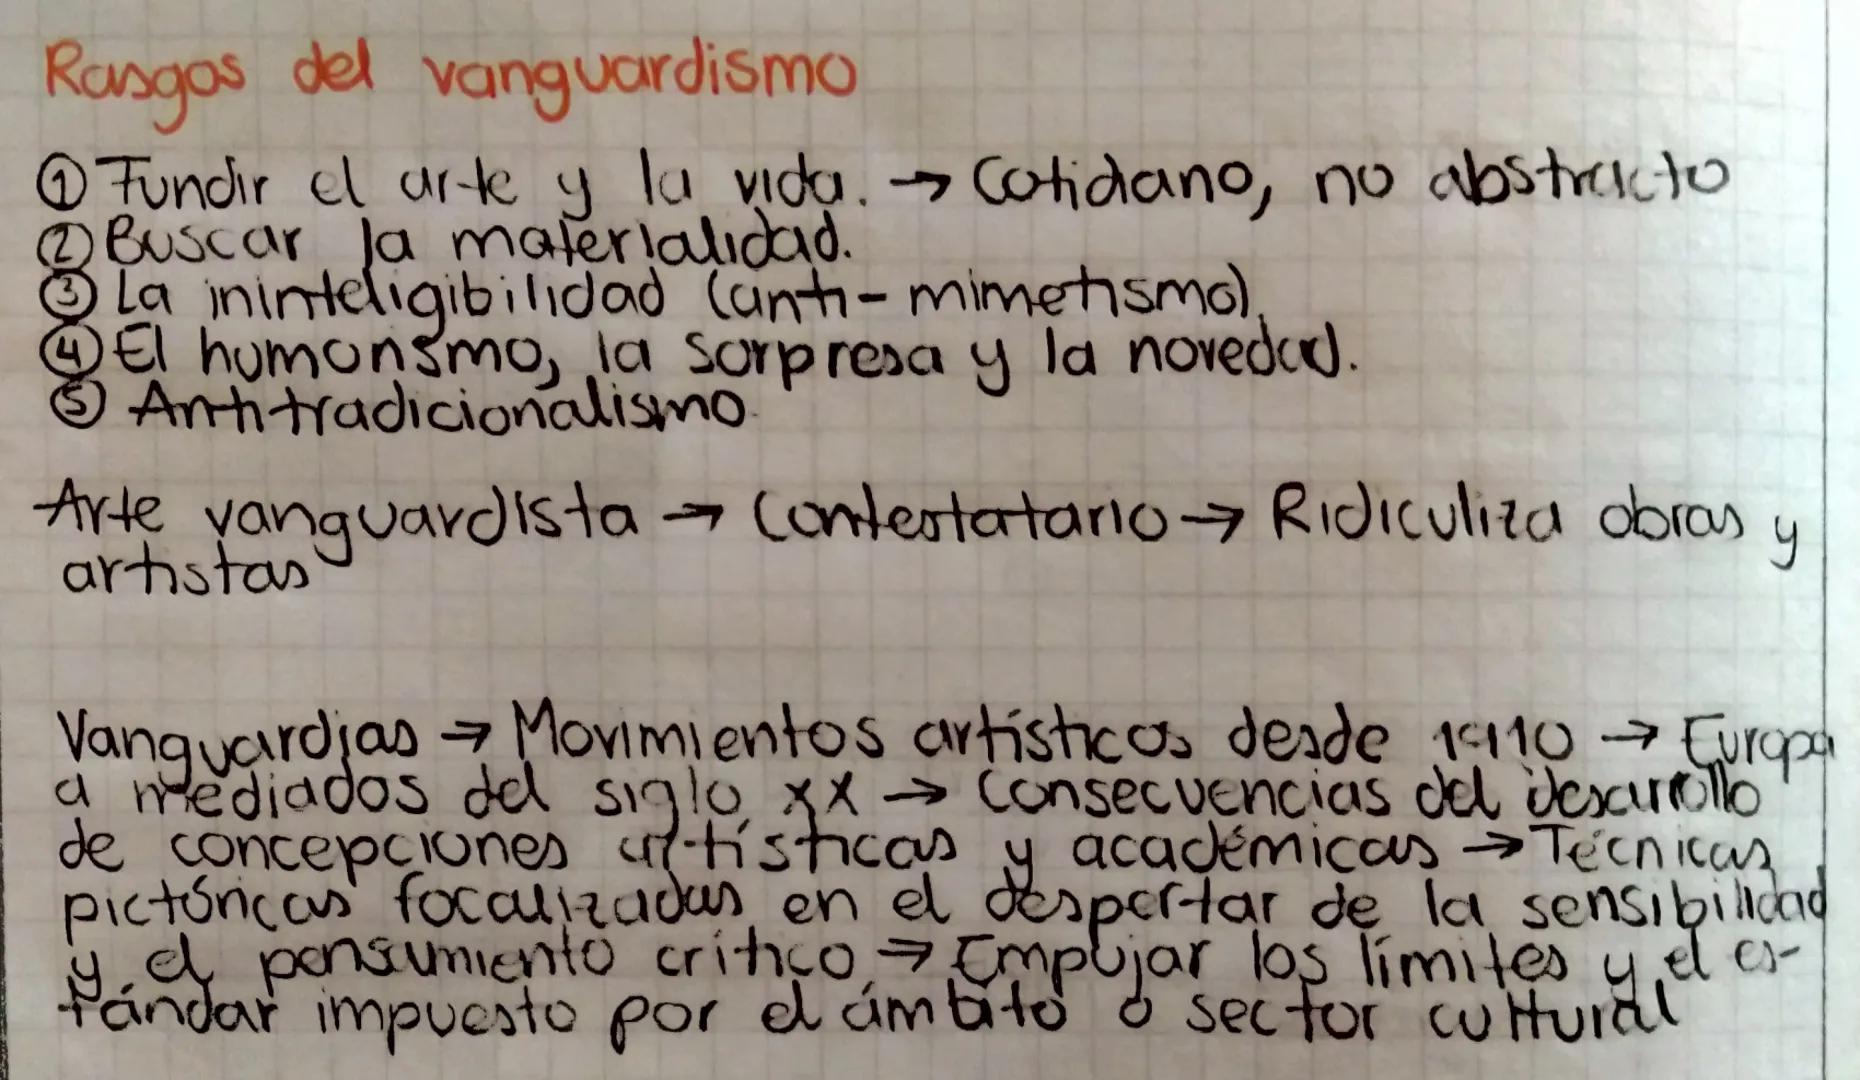 Rasgos del vanguardismo
① Fundir el arte y la vida. → Cotidiano, no abstracto
② Buscar la materialidad.
③ La ininteligibilidad (anti-mimetismo).
④ El humorismo, la sorpresa y la novedad.
⑤ Antitradicionalismo.
Arte vanguardista → Contestatario → Ridiculiza obras y
artistas
Vanguardias → Movimientos artísticos desde 1910 → Europa
a mediados del siglo XX → Consecuencias del desarrollo
de concepciones artísticas y académicas → Técnicas
pictóricas focalizadas en el despertar de la sensibilidad
y el pensamiento crítico → Empujar los límites y el es-
tándar impuesto por el ámbito o sector cultural